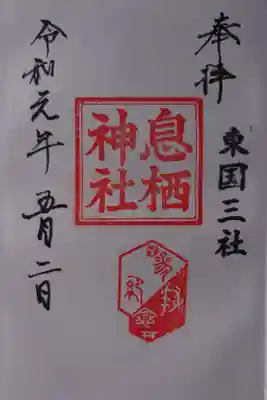 奉拝
東国三社
息栖
神社
参拝
令和元年五月二日